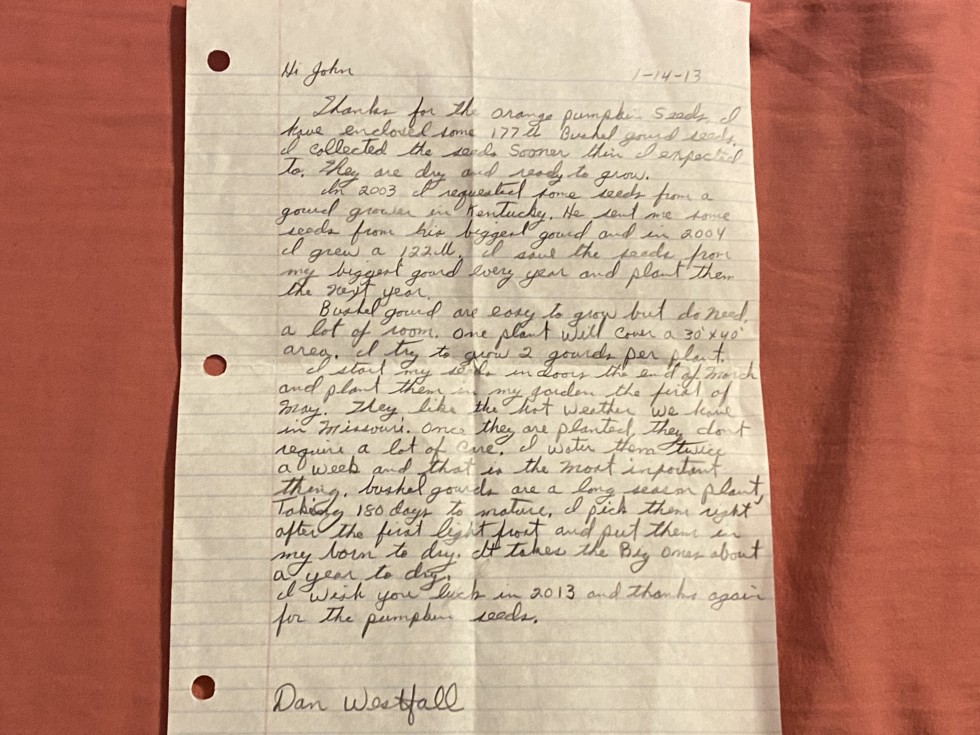 Hi John 1-14-13
Thanks for the orange pumpkin Seeds, I
have enclosed some 177 lb Bushel gourd seeds.
I collected the seeds Sooner than I expected
to. They are dry and ready to grow.
In 2003 I requested some seeds from a
gourd grower in Kentucky. He sent me some
seeds from his biggest gourd and in 2004
I grew a 122 lb. I save the seeds from
my biggest gourd every year and plant them
the next year.
Bushel gourd are easy to grow but do need
a lot of room. One plant will cover a 30'x40'
area. I try to grow 2 gourds per plant.
I start my seeds indoors the end of March
and plant them in my garden the first of
May. They like the hot weather we have
in Missouri. Once they are planted, they dont
require a lot of care. I water them twice
a week and that is the most important
thing. bushel gourds are a long season plant,
Taking 180 days to mature. I pick them right
after the first light frost and put them in
my barn to dry. It takes the Big ones about
a year to dry.
I wish you luck in 2013 and thanks again
for the pumpkin seeds.
Dan Westfall